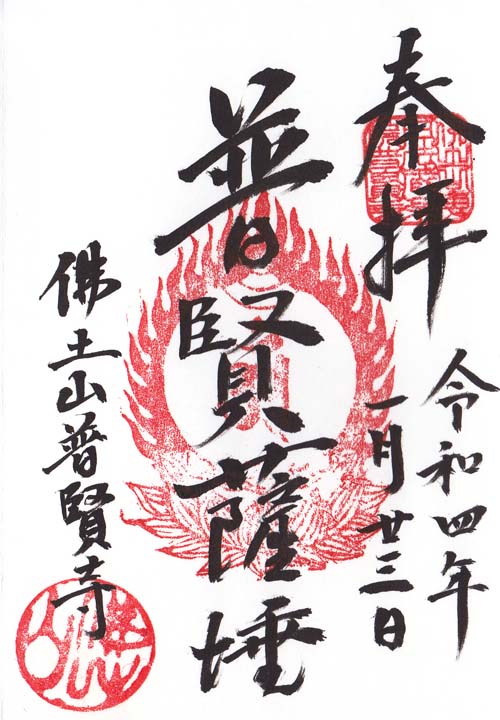 奉拝
令和四年
一月廿三日
普賢薩埵
佛土山普賢寺